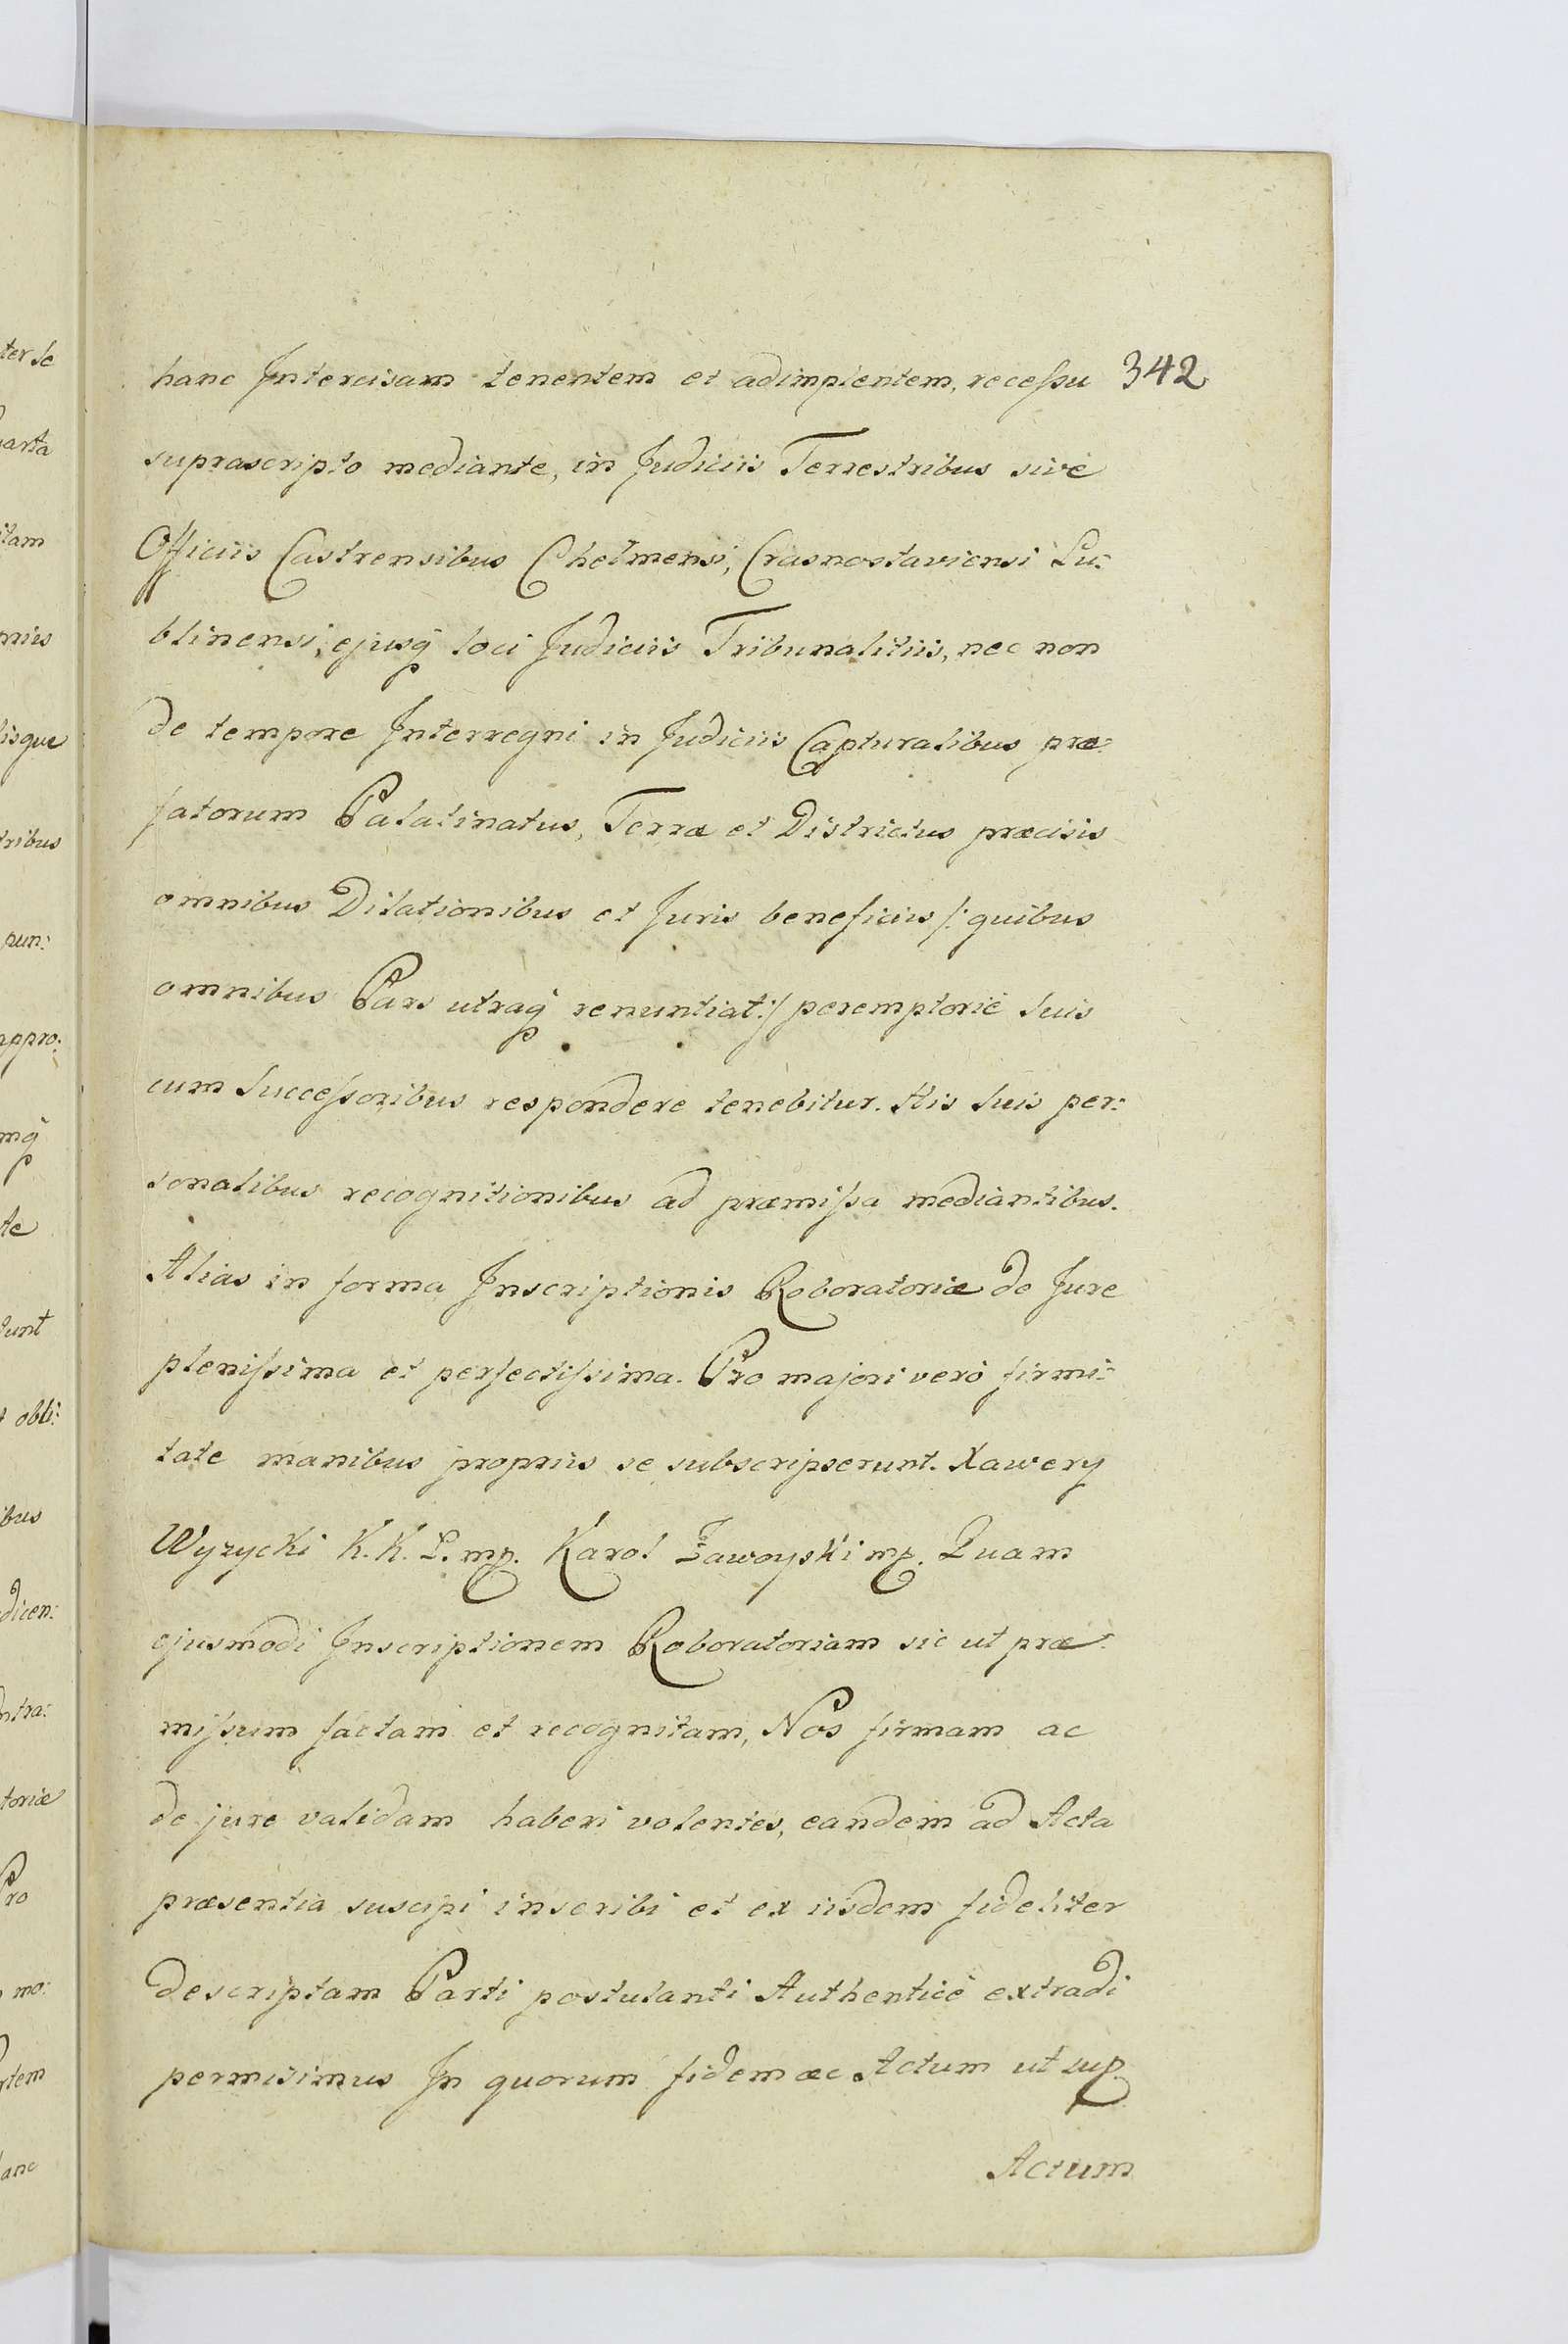 hanc Intercisam tenentem et adimplentem, recessu 342
suprascripto mediante, in Judiciis Terrestribus sivè
Officiis Castrensibus Chelmensi, Crasnostaviensi Lu:
blinensi, ejusq̃ loci Judiciis Tribunalitiis, nec non
de tempore Interregni in Judiciis Capturalibus præ:
fatorum Palatinatus, Terræ et Districtus præcisis
omnibus Dilationibus et Juris beneficiis /: quibus
omnibus Pars utraq̃ renuntiat :/ peremptoriè suis
cum Successoribus respondere tenebitur. His Suis per:
sonalibus recognitionibus ad præmissa mediantibus.
Alias in forma Inscriptionis Roboratoriæ de Jure
plenissima et perfectissima. Pro majori verò firmi:
tate manibus propriis se subscripserunt. Xawery
Wyzycki K. K. L. mp. Karol Zawoyski mp. Quam
ejusmodi Inscriptionem Roboratoriam sic ut præ:
missum factam et recognitam, Nos firmam ac
de jure validam haberi volentes, eandem ad Acta
præsentia suscipi inscribi et ex iisdem fideliter
descriptam Parti postulanti Authenticè extradi
permisimus In quorum fidem ac Actum ut sup.
Actum
ter se
arta
itam
mis
lisque
tribus
pun:
appro:
mq̃
te
dunt
obli:
ibus
dicen:
ntra:
toriæ
Pro
mo:
rtem
anc